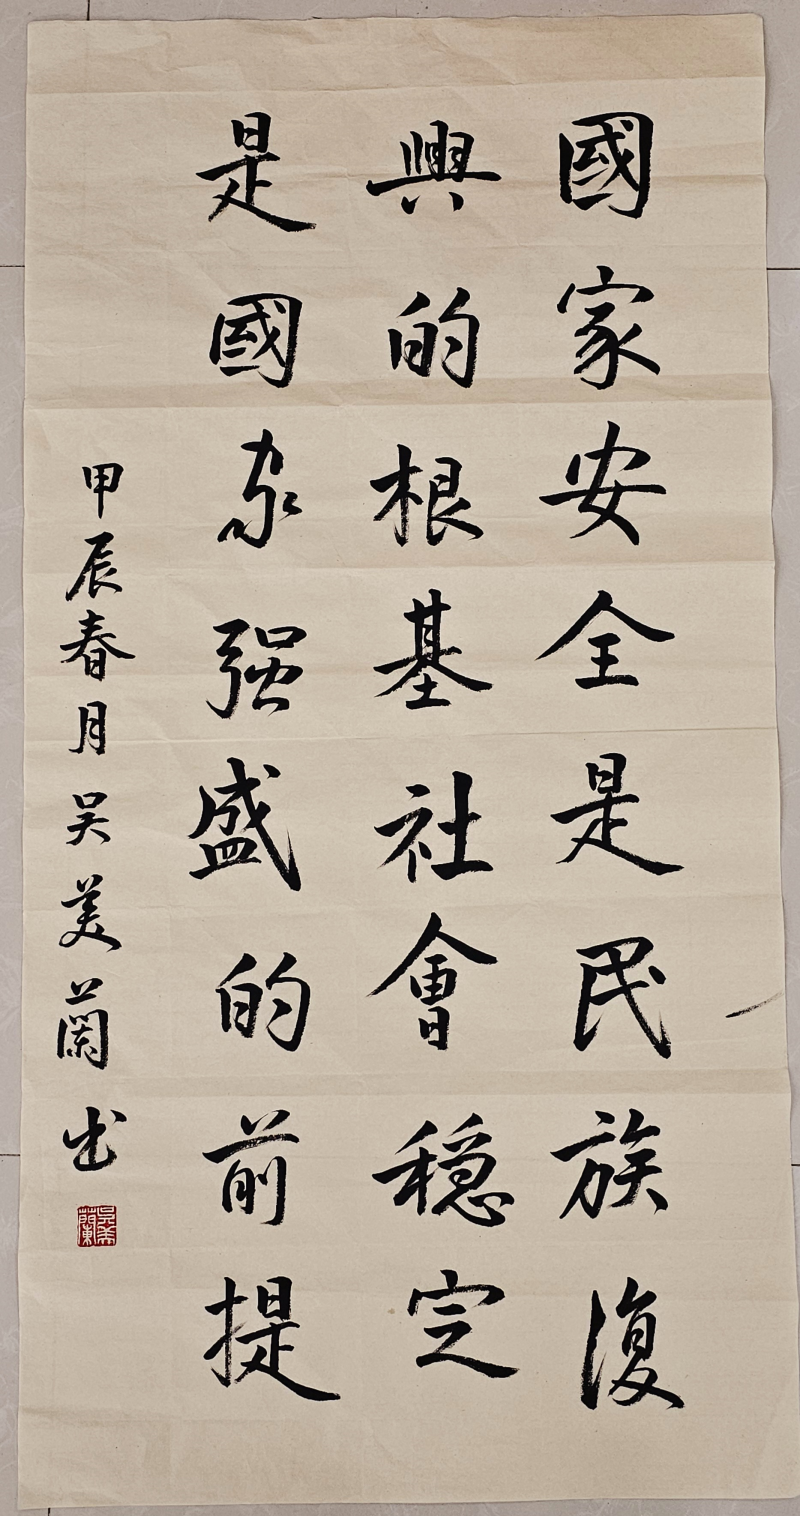 國家安全是民族復
興的根基社會穩定
是國家强盛的前提
甲辰春月吴美蘭出
吴美蘭